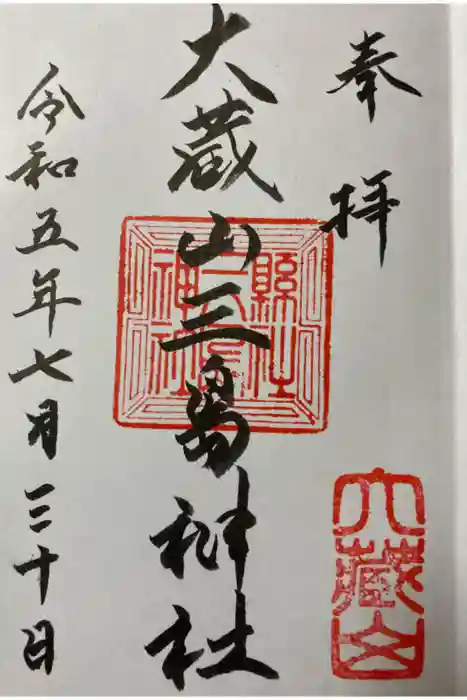 奉拝
大蔵山三島神社
令和五年七月三十日
縣社
三島
神社
大蔵山